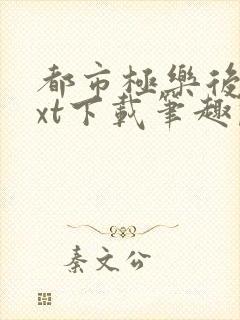 都市極樂後
xt下載筆趣
秦文公